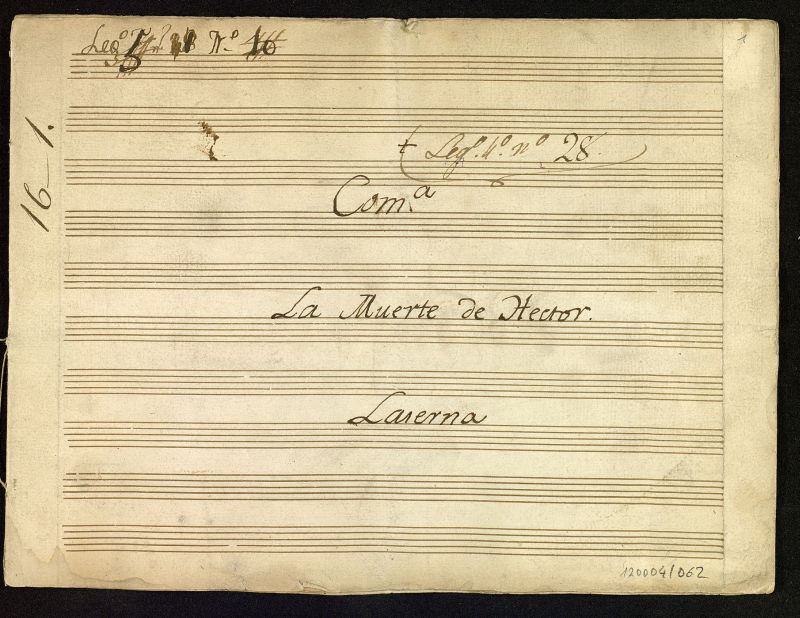 Leg.º Nº 16
1
16-1.
Leg.º 4º nº 28
Com.ª
La Muerte de Hector.
Laserna
120004/062